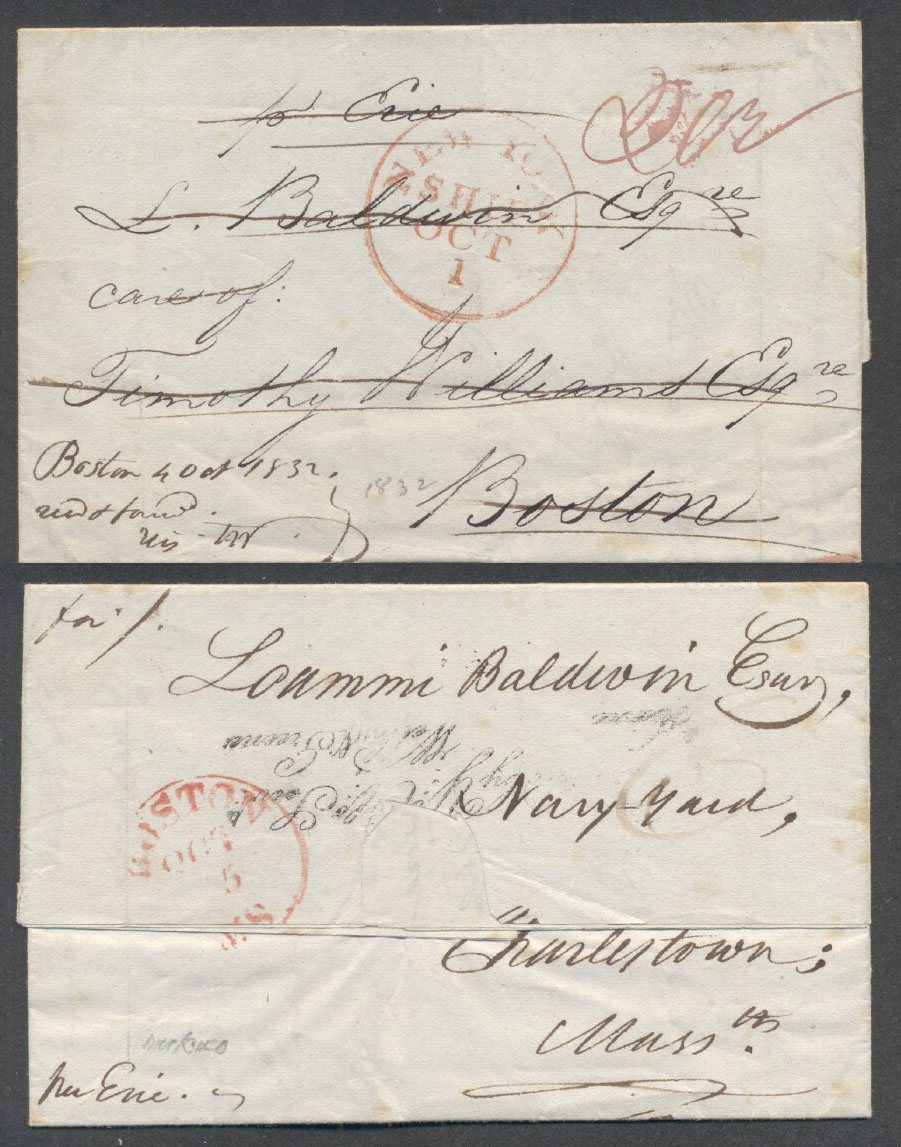 pr Erie
L. Baldwin Esqre
care of:
Timothy Williams Esqre
Boston
NEW YORK
SHIP
OCT
1
Boston 4 Oct 1832.
1832
Loammi Baldwin Esqr,
Navy-Yard,
Charlestown;
Massts.
BOSTON
OCT
5
MS
per Erie.